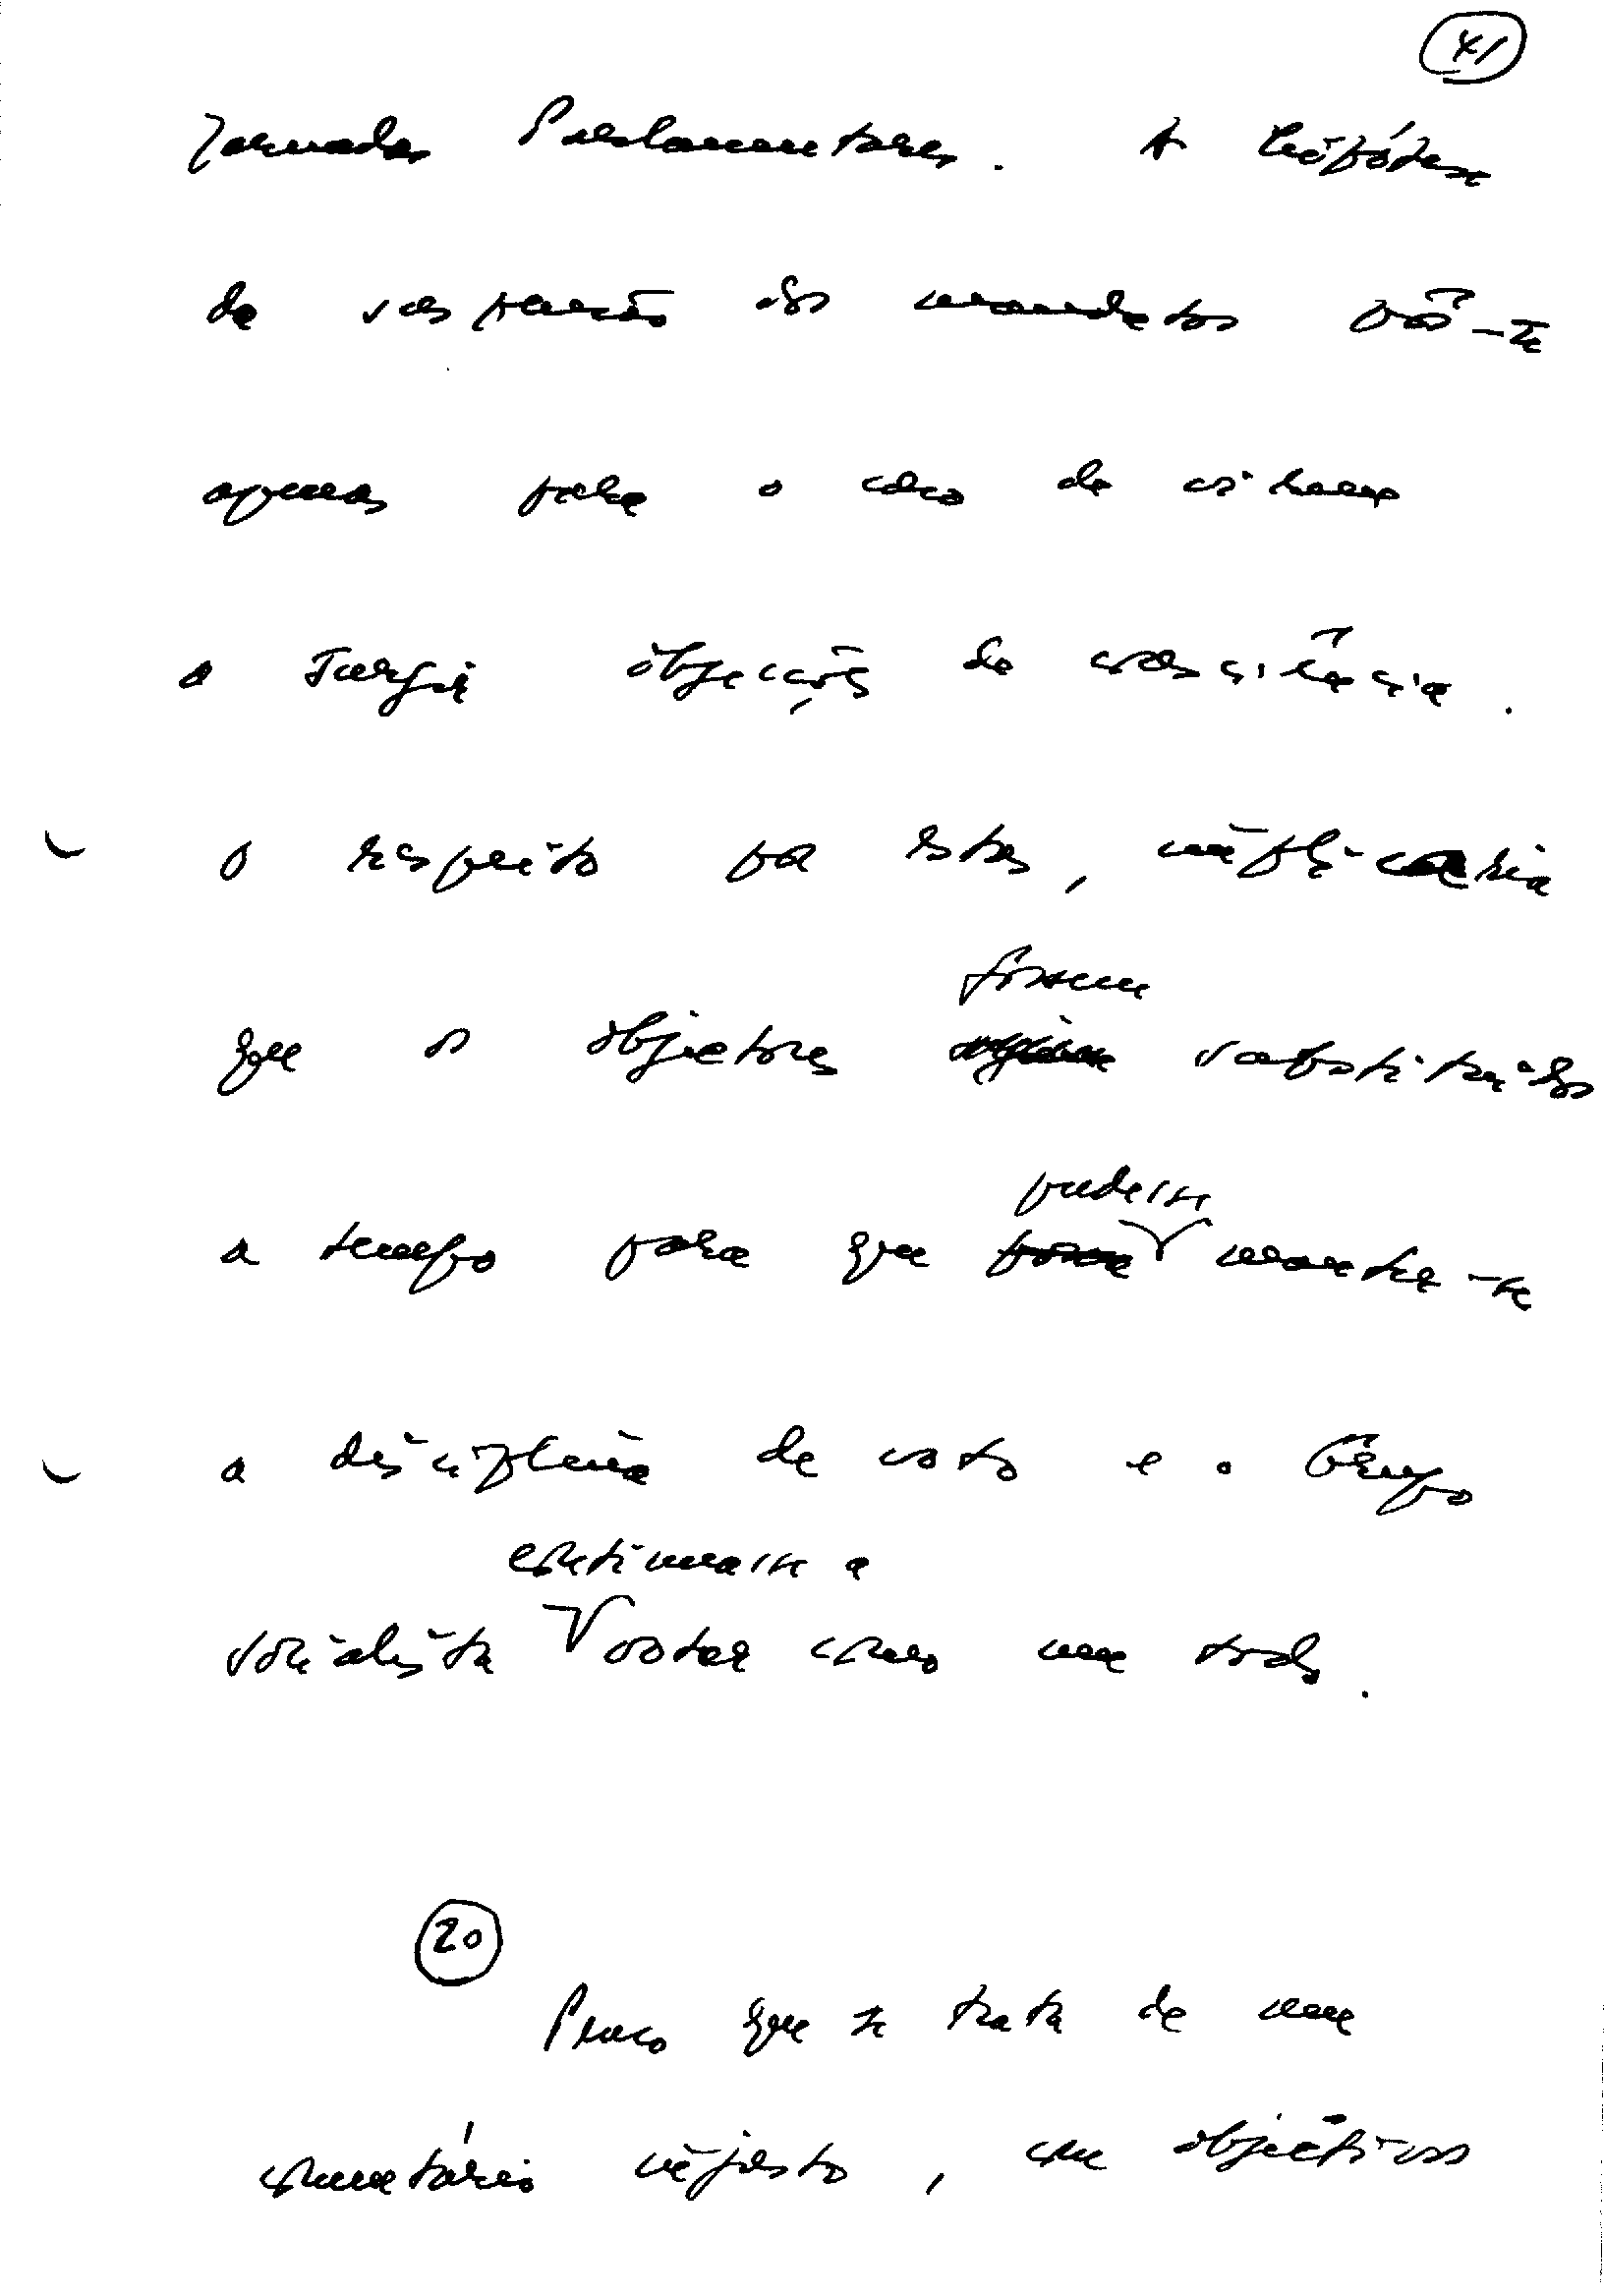 41
Jornadas Parlamentares. A hipótese
de suspensão dos mandatos pôs-se
apenas para o caso de virem
a surgir objecções de consciência.
O respeito por estas, implicaria
que os objectores fossem substituídos
a tempo para que pudesse manter-se
a disciplina de voto e o Grupo
Socialista continuasse a votar como um todo.
20
Penso que se trata de um
comentário injusto, com objectivos